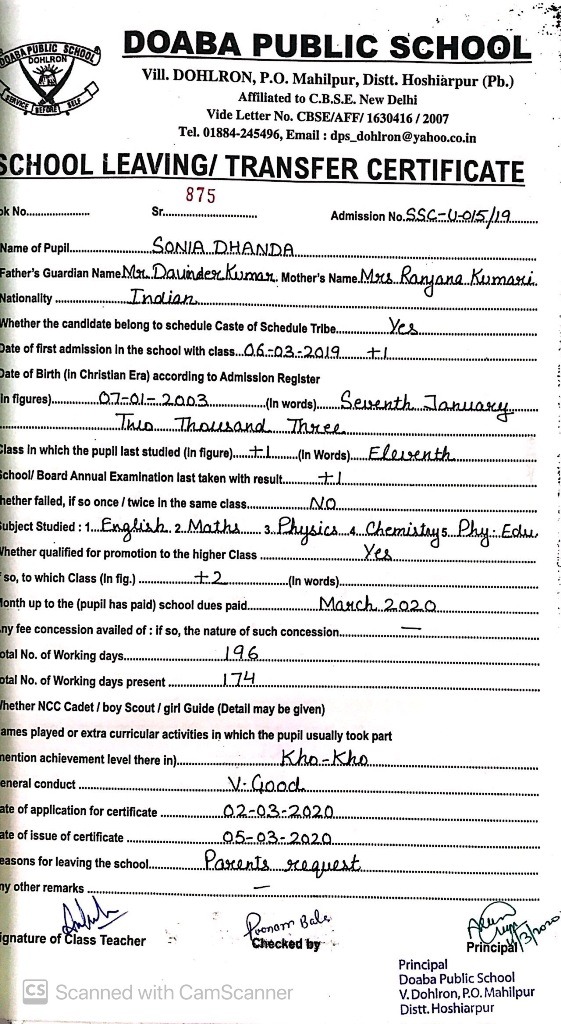 DOABA PUBLIC SCHOOL
DOABA PUBLIC SCHOOL
DOHLRON
SERVICE BEFORE SELF
Vill. DOHLRON, P.O. Mahilpur, Distt. Hoshiarpur (Pb.)
Affiliated to C.B.S.E. New Delhi
Vide Letter No. CBSE/AFF/ 1630416 / 2007
Tel. 01884-245496, Email : dps_dohlron@yahoo.co.in
SCHOOL LEAVING/ TRANSFER CERTIFICATE
ok No.................... Sr. 875 Admission No. SSC-U-015/19
Name of Pupil SONIA DHANDA
Father's Guardian Name Mr. Davinder Kumar. Mother's Name Mrs Ranjana Kumari.
Nationality Indian
Whether the candidate belong to schedule Caste of Schedule Tribe Yes
Date of first admission in the school with class 06-03-2019 +1
Date of Birth (in Christian Era) according to Admission Register
In figures) 07-01-2003 (In words) Seventh January
Two Thousand Three
Class in which the pupil last studied (In figure) +1 (In Words) Eleventh
School/ Board Annual Examination last taken with result +1
hether failed, if so once / twice in the same class NO
ubject Studied : 1. English 2. Maths 3. Physics 4. Chemistry 5. Phy. Edu.
Whether qualified for promotion to the higher Class Yes
so, to which Class (In fig.) +2 (In words)
onth up to the (pupil has paid) school dues paid March 2020
ny fee concession availed of : if so, the nature of such concession —
otal No. of Working days 196
otal No. of Working days present 174
hether NCC Cadet / boy Scout / girl Guide (Detail may be given)
ames played or extra curricular activities in which the pupil usually took part
mention achievement level there in) Kho-Kho
eneral conduct V. Good
ate of application for certificate 02-03-2020
ate of issue of certificate 05-03-2020
easons for leaving the school Parents request
ny other remarks —
Poonam Bala
ignature of Class Teacher Checked by Principal
Principal
Doaba Public School
V. Dohlron, P.O. Mahilpur
Distt. Hoshiarpur
CS Scanned with CamScanner